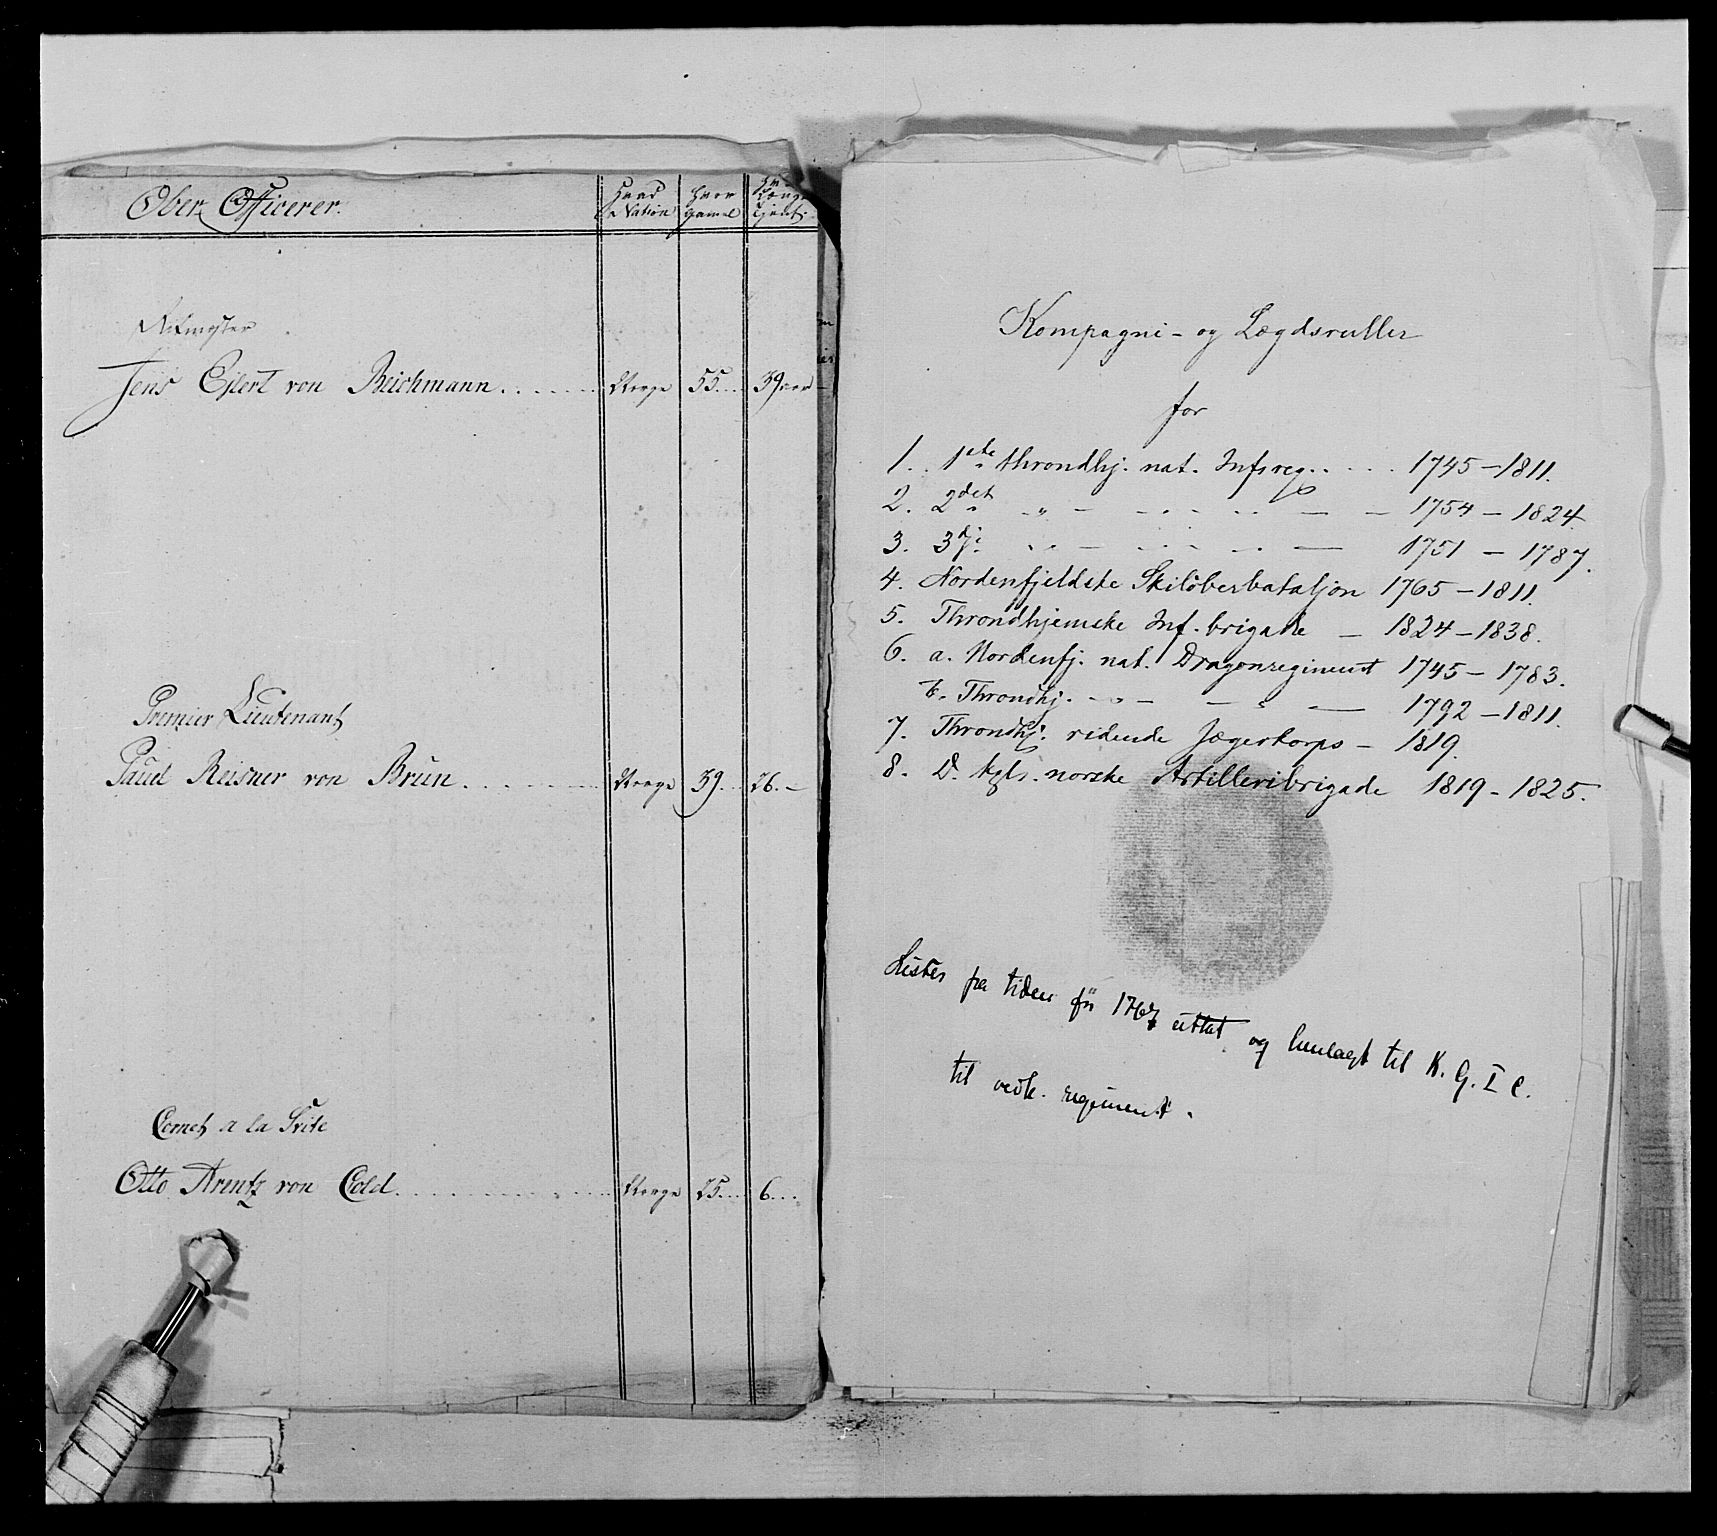 Ober Officerer.
Hvad Nation
Hvor gamel
Længe tjent
Ritmester
Jens Eilert von Reichmann . . . . . . Norge 55 . . . 39 aar
Premier Lieutenant
Paul Reisner von Brun . . . . . . Norge 39 . . . 26. —
Cornet a la Svite
Otto Arentz von Cold . . . . . . Norge 25 . . . 6 . . .
Kompagni- og Lægdsruller
for
1. 1ste throndhj. nat. Inf.reg. . . . . 1745 – 1811.
2. 2det " — — — 1754 – 1824
3. 3dje " — — — 1751 – 1787.
4. Nordenfjeldske Skiløberbataljon 1765 – 1811.
5. Throndhjemske Inf. brigade — 1824 – 1838.
6. a. Nordenfj. nat. Dragonregiment 1745 – 1783.
b. Throndhj. — " — — " — 1792 – 1811.
7. Throndhj. ridende Jægerkorps – 1819.
8. D. kgl. norske Artilleribrigade 1819 – 1825.
Lister fra tiden før 1767 uttat og henlagt til K. G. I C.
til vedk. regiment.